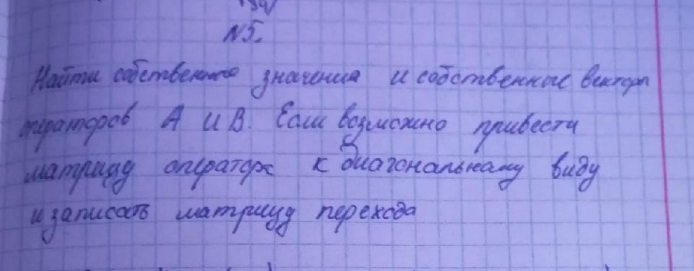 N5.
Найти собственные значения и собственные вектора
операторов A и B. Если возможно привести
матрицу оператора к диагональному виду
и записать матрицу перехода